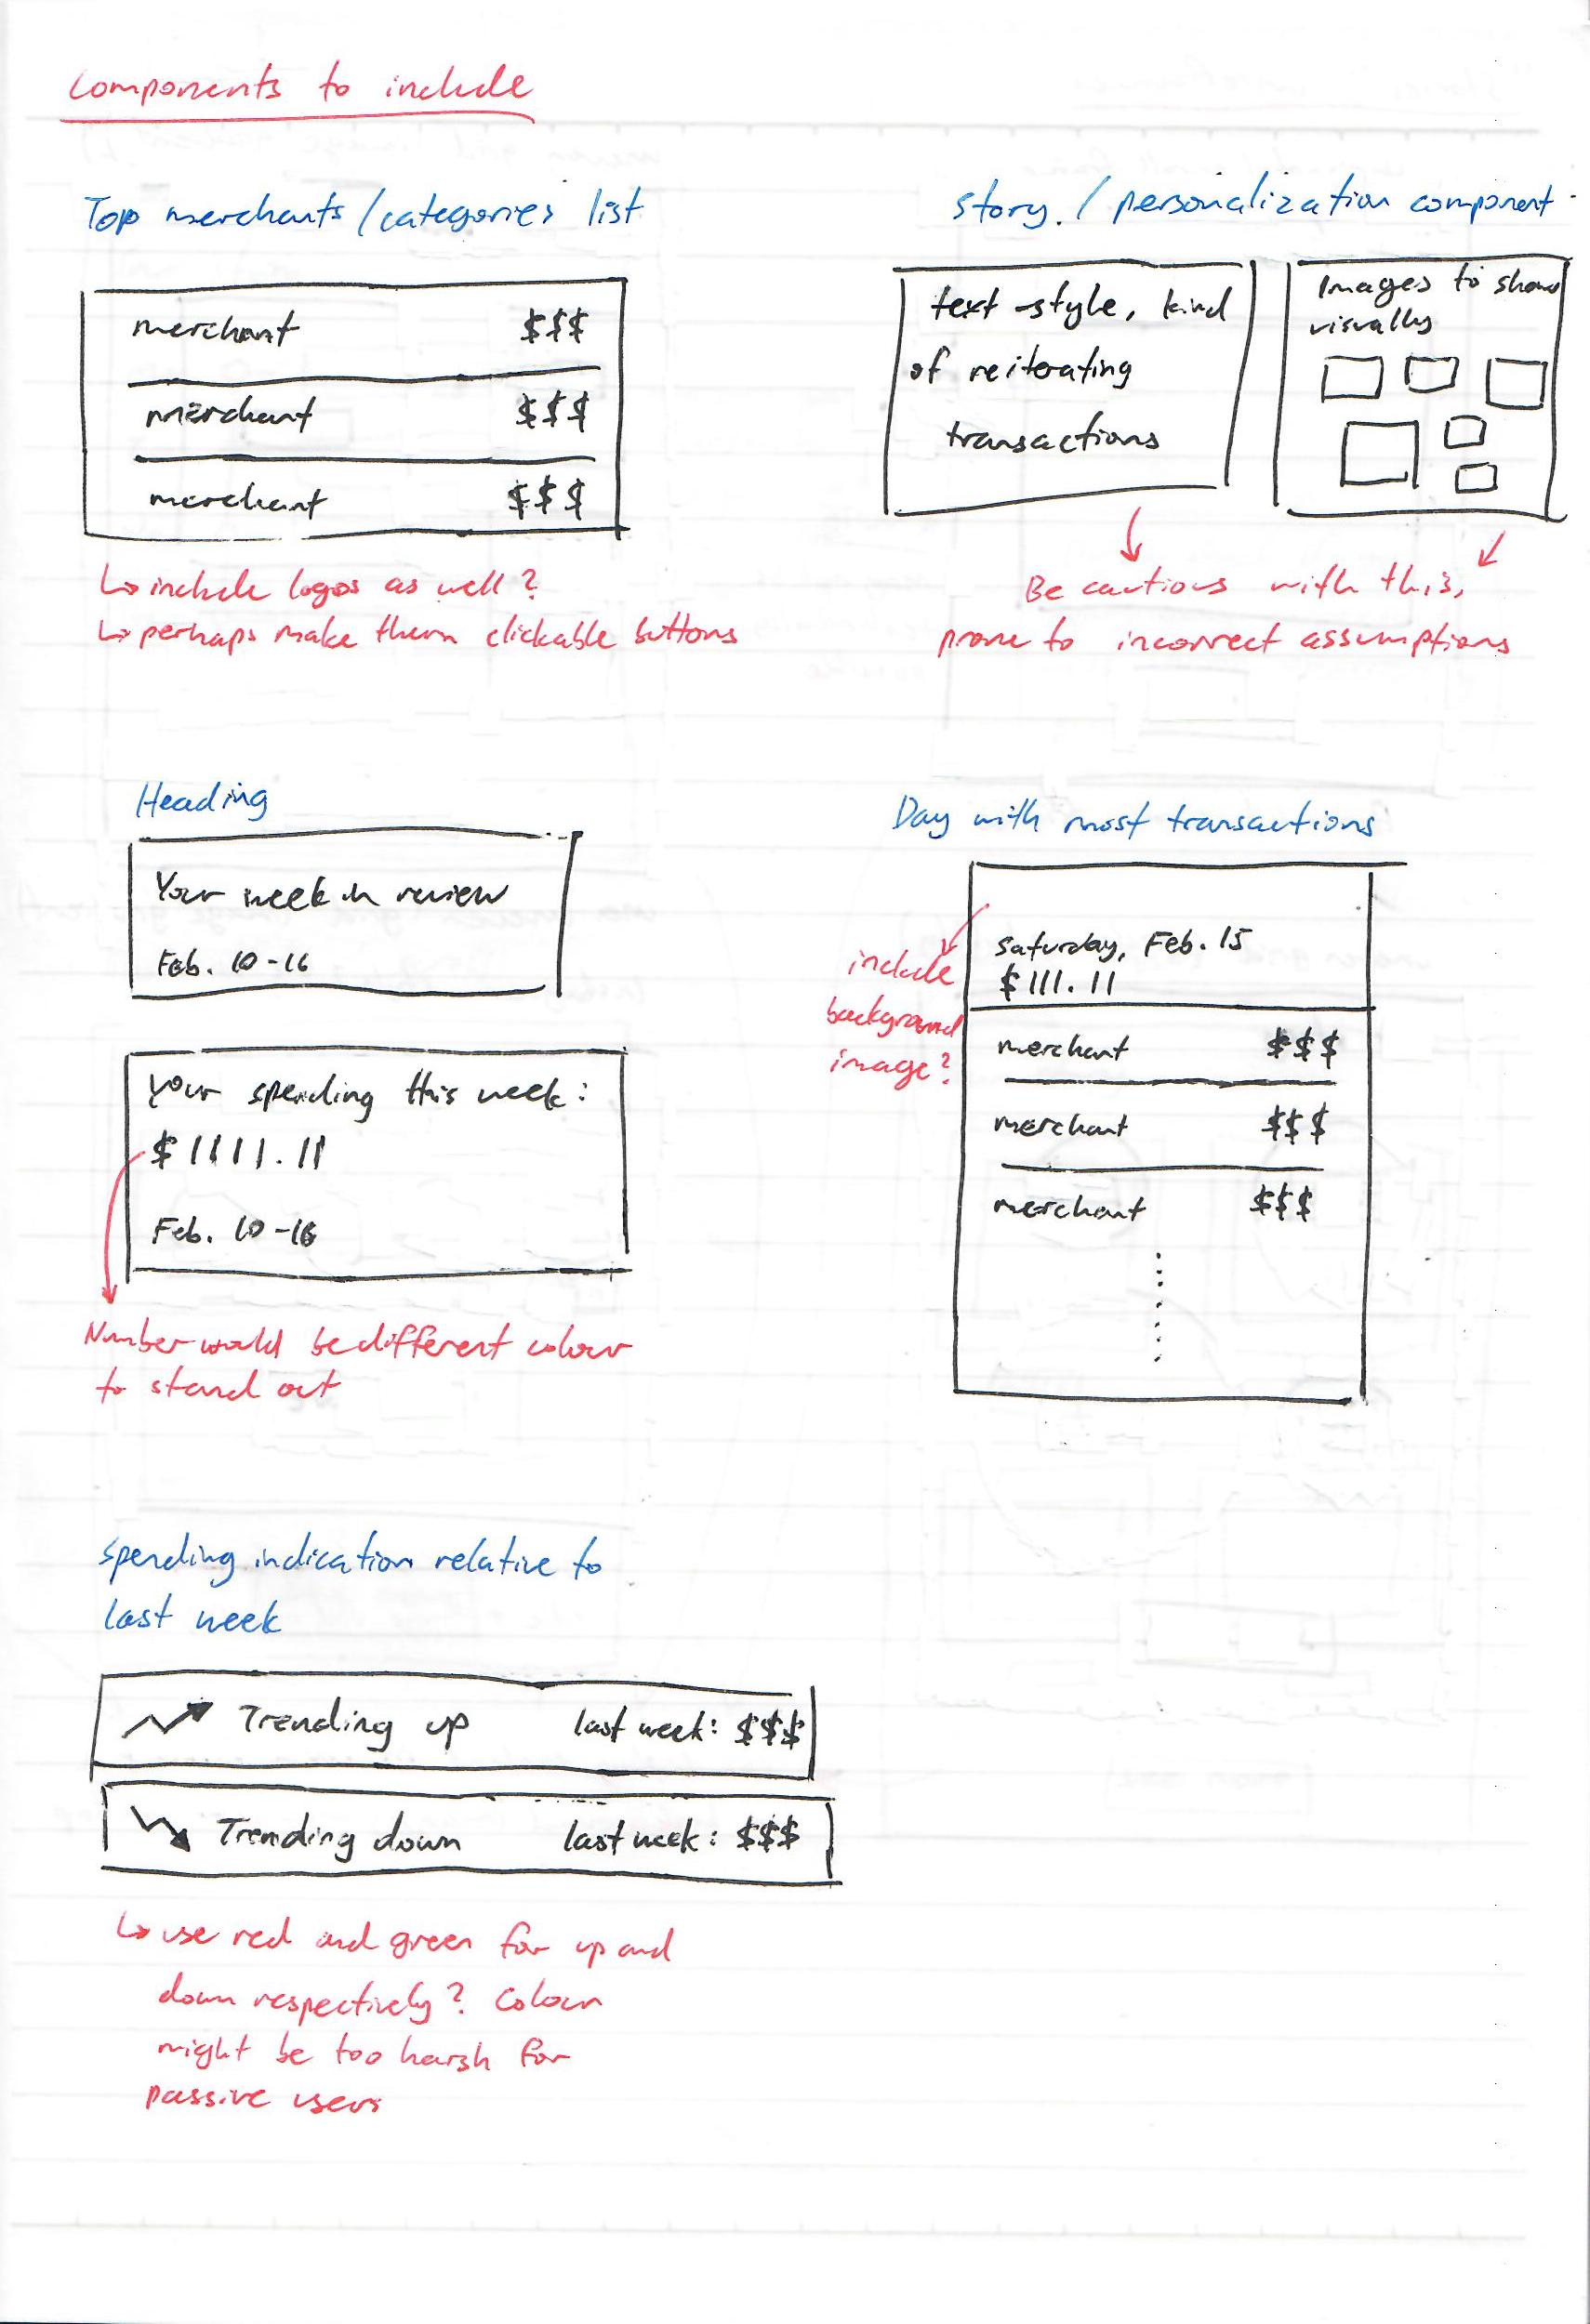 Components to include
Top merchants/categories list
merchant $$$
merchant $$$
merchant $$$
↳ include logos as well?
↳ perhaps make them clickable buttons
story / personalization component
text-style, kind
of reiterating
transactions
Images to show
visually
Be cautious with this,
prone to incorrect assumptions
Heading
Your week in review
Feb. 10-16
Your spending this week:
$1111.11
Feb. 10-16
Number would be different colour
to stand out
Day with most transactions
include
background
image?
Saturday, Feb. 15
$111.11
merchant $$$
merchant $$$
merchant $$$
Spending indication relative to
last week
Trending up last week: $$$
Trending down last week: $$$
↳ use red and green for up and
down respectively? Colour
might be too harsh for
passive users